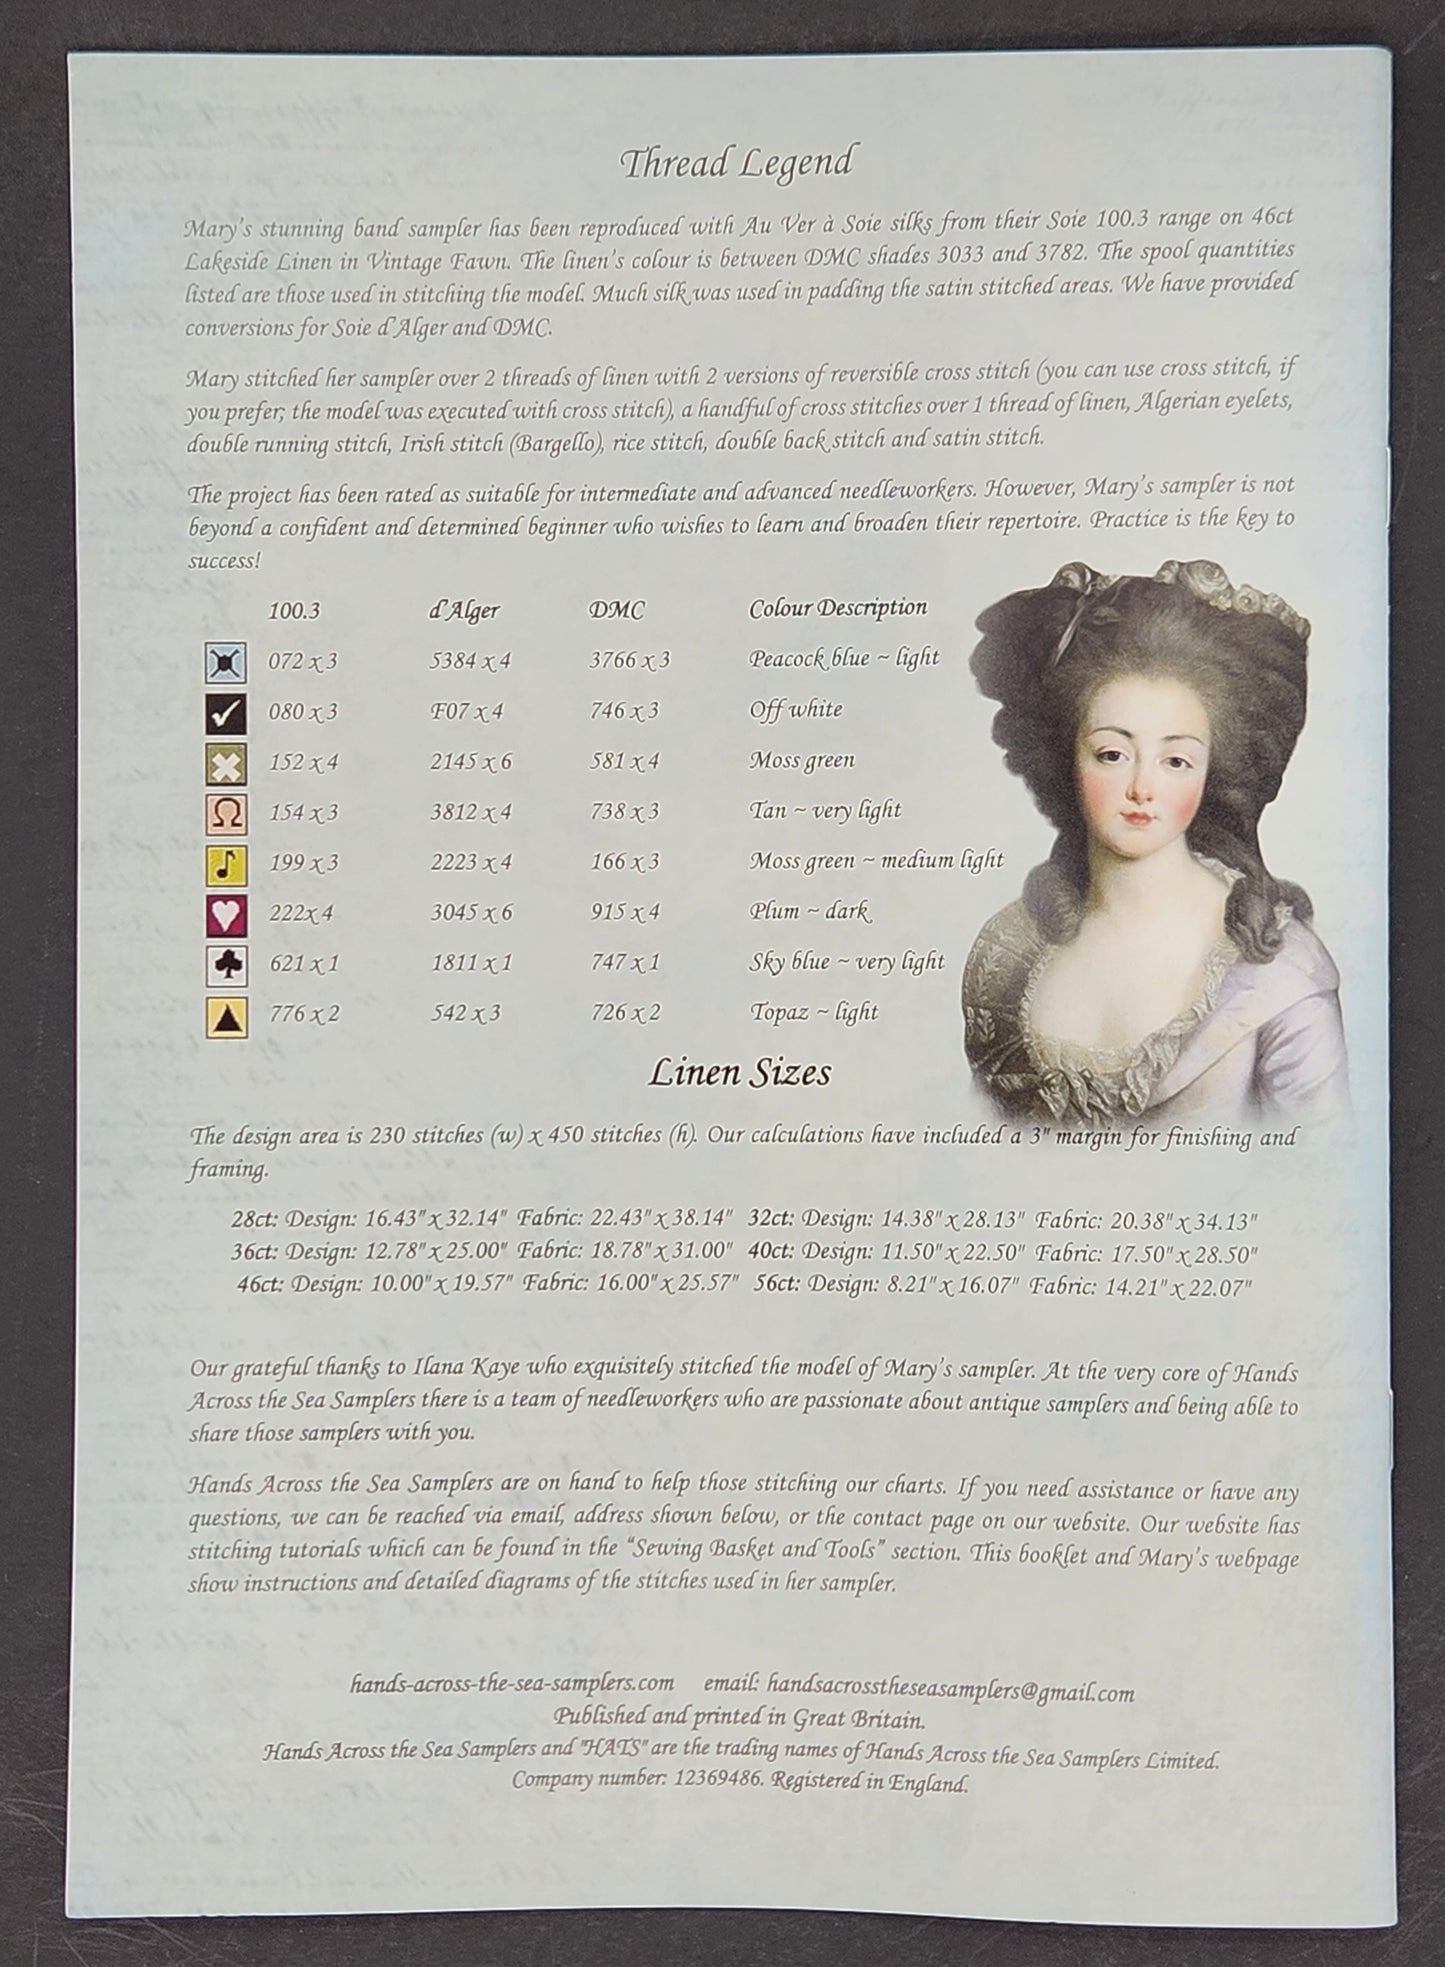 Thread Legend
Mary's stunning band sampler has been reproduced with Au Ver à Soie silks from their Soie 100.3 range on 46ct
Lakeside Linen in Vintage Fawn. The linen's colour is between DMC shades 3033 and 3782. The spool quantities
listed are those used in stitching the model. Much silk was used in padding the satin stitched areas. We have provided
conversions for Soie d'Alger and DMC.
Mary stitched her sampler over 2 threads of linen with 2 versions of reversible cross stitch (you can use cross stitch, if
you prefer; the model was executed with cross stitch), a handful of cross stitches over 1 thread of linen, Algerian eyelets,
double running stitch, Irish stitch (Bargello), rice stitch, double back stitch and satin stitch.
The project has been rated as suitable for intermediate and advanced needleworkers. However, Mary's sampler is not
beyond a confident and determined beginner who wishes to learn and broaden their repertoire. Practice is the key to
success!
100.3 d'Alger DMC Colour Description
072 x 3 5384 x 4 3766 x 3 Peacock blue ~ light
080 x 3 F07 x 4 746 x 3 Off white
152 x 4 2145 x 6 581 x 4 Moss green
154 x 3 3812 x 4 738 x 3 Tan ~ very light
199 x 3 2223 x 4 166 x 3 Moss green ~ medium light
222x 4 3045 x 6 915 x 4 Plum ~ dark
621 x 1 1811 x 1 747 x 1 Sky blue ~ very light
776 x 2 542 x 3 726 x 2 Topaz ~ light
Linen Sizes
The design area is 230 stitches (w) x 450 stitches (h). Our calculations have included a 3" margin for finishing and
framing.
28ct: Design: 16.43" x 32.14" Fabric: 22.43" x 38.14" 32ct: Design: 14.38" x 28.13" Fabric: 20.38" x 34.13"
36ct: Design: 12.78" x 25.00" Fabric: 18.78" x 31.00" 40ct: Design: 11.50" x 22.50" Fabric: 17.50" x 28.50"
46ct: Design: 10.00" x 19.57" Fabric: 16.00" x 25.57" 56ct: Design: 8.21" x 16.07" Fabric: 14.21" x 22.07"
Our grateful thanks to Ilana Kaye who exquisitely stitched the model of Mary's sampler. At the very core of Hands
Across the Sea Samplers there is a team of needleworkers who are passionate about antique samplers and being able to
share those samplers with you.
Hands Across the Sea Samplers are on hand to help those stitching our charts. If you need assistance or have any
questions, we can be reached via email, address shown below, or the contact page on our website. Our website has
stitching tutorials which can be found in the "Sewing Basket and Tools" section. This booklet and Mary's webpage
show instructions and detailed diagrams of the stitches used in her sampler.
hands-across-the-sea-samplers.com email: handsacrosstheseasamplers@gmail.com
Published and printed in Great Britain.
Hands Across the Sea Samplers and "HATS" are the trading names of Hands Across the Sea Samplers Limited.
Company number: 12369486. Registered in England.